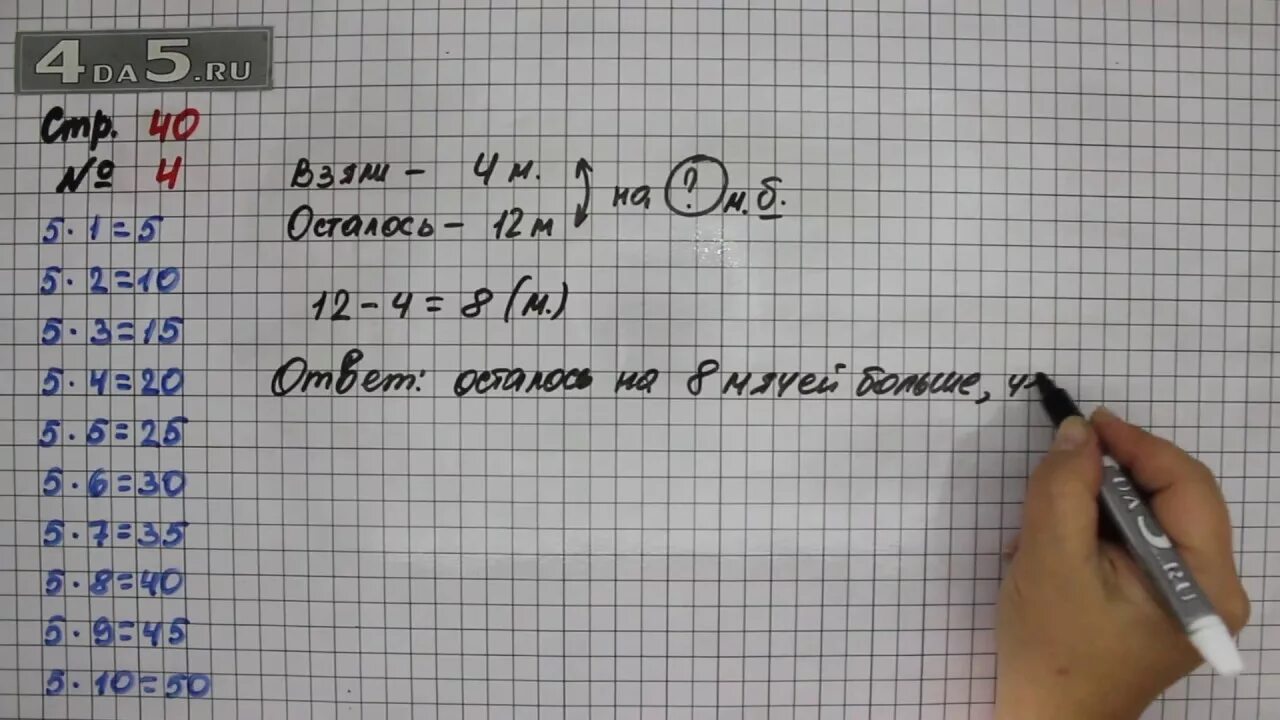 4DA5.RU
Стр. 40
№ 4
5·1=5
5·2=10
5·3=15
5·4=20
5·5=25
5·6=30
5·7=35
5·8=40
5·9=45
5·10=50
Взяли - 4 м.
Осталось - 12 м
на ? м. б.
12-4=8 (м.)
Ответ: осталось на 8 мячей больше, че
DA5.RU